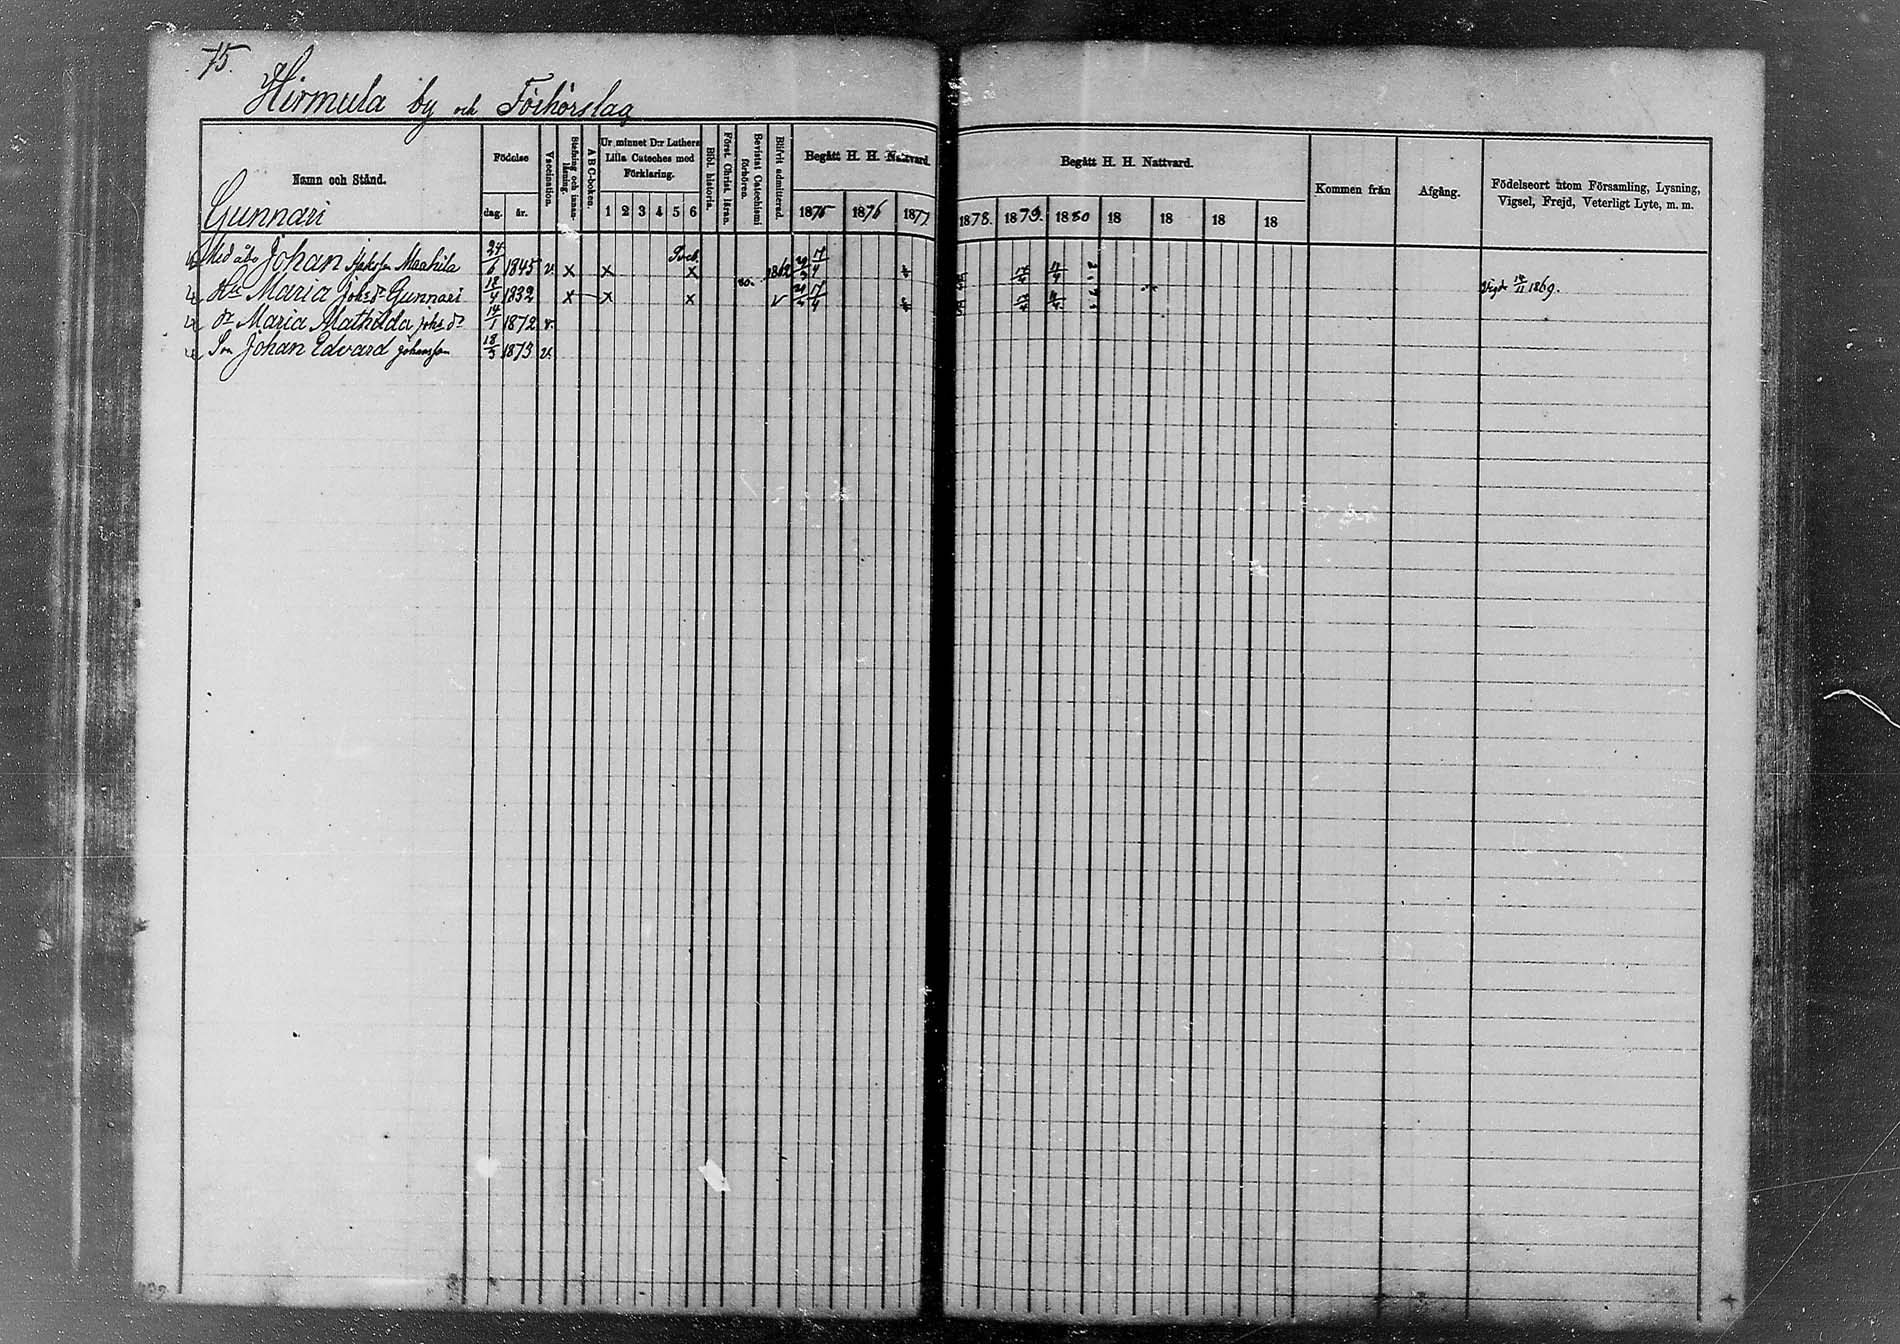 75.
Hirmula by och Förhörslag
Namn och Stånd.
Födelse
dag. år.
Vaccination.
Stafning och innan-läsning.
A B C-boken.
Ur minnet D:r Luthers Lilla Cateches med Förklaring.
1 2 3 4 5 6
Bibl. historia.
Först. Christ. läran.
Bevistat Catechismi förhören.
Blifvit admitterad.
Begått H. H. Nattvard.
1875 1876 1877
Begått H. H. Nattvard.
1878. 1879. 1880 18 18 18 18
Kommen från
Afgång.
Födelseort utom Församling, Lysning, Vigsel, Frejd, Veterligt Lyte, m. m.
Gunnari
Johan Maahila 24/6 1845 v. x x x 17/4
Maria Johsdr Gunnari 18/4 1832 x x x v 17/4 Vigde 1869.
dr Maria Mathilda Johs dr 14/1 1872 v.
Son Johan Edvard Johansson 18/3 1873 v.